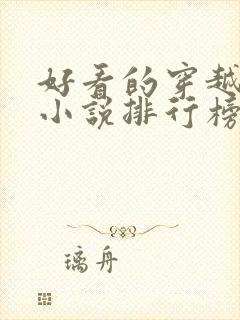 好看的穿越
小说排行榜
璃舟